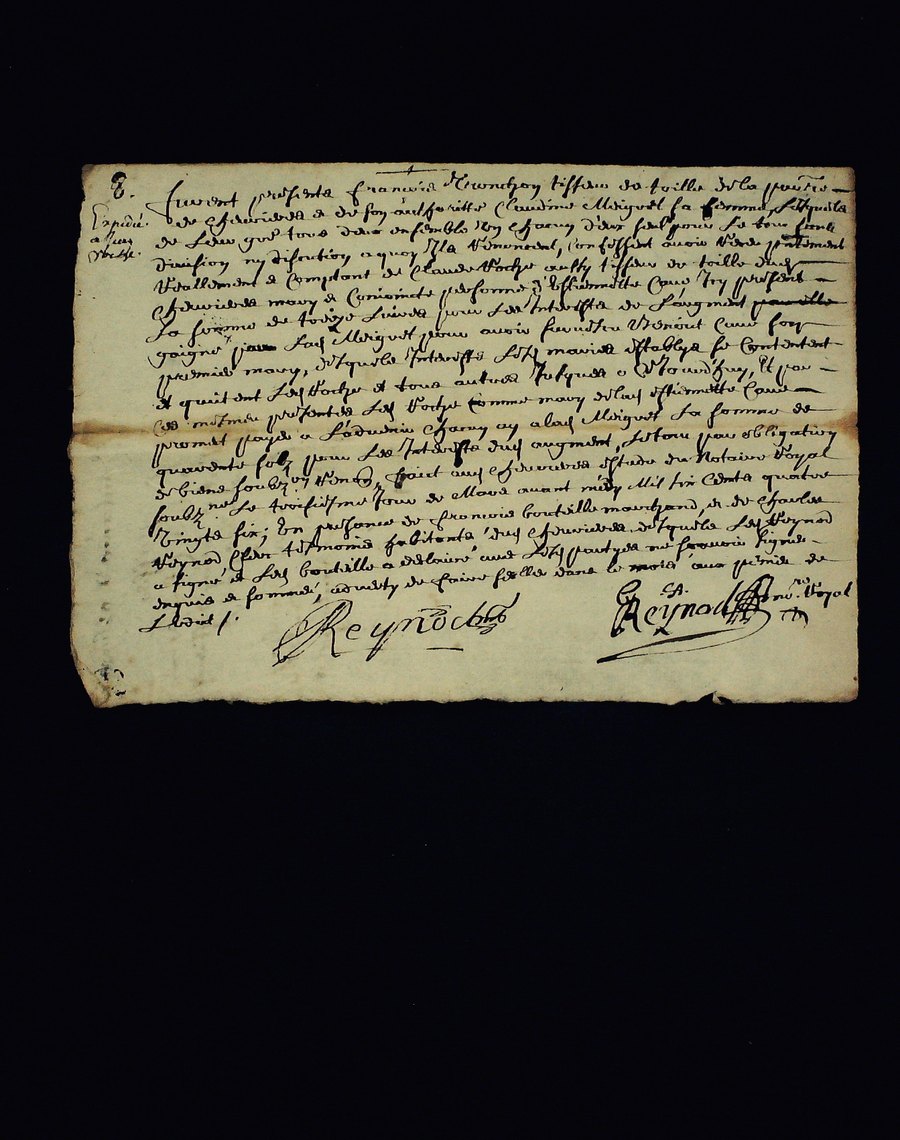 8.
Expédié
Furent présents François Tronchon tisseur de toille de la parre
de Chevrieres & de son authoritte Claudine Meignet sa femme, Lesquels
de Leur gré tous deux ensemble Un Chacun d'eux seul pour Le tout sans
division ny discution a quoy Ils Renoncent, Confessent avoir Receu presentement
Reallement & Comptant de Claude Roche aussy tisseur de toille dud
Chevrieres mary & Conjointe personne d'Estiennette Cave Icy present
La somme de treize Livres pour Les Interests de L'augment
gaigné par Lad Meignet pour avoir survescu Benoist Cave son
premier mary, desquels Interests Lesd mariés establys se Contentent
et quittent Led Roche et tous autres Jusques a Ce Jourd'huy, Et par
Ces mesmes presentes Led Roche Comme mary de lad Estiennette Cave
promet payer a L'advenir Chacun an a lad Meignet La somme de
quarante solz pour Les Interests dud augment, Le tout par obligation
de biens soubz on Renon, faict aud Chevrieres estude du Notaire Royal
soubzné Le troisiesme Jour de Mars avant midy Mil six Cents quatre
Vingts six; En presance de François bouteille marchand, & de Charles
Reynod Clerc tesmoins habitants dud Chevrieres, desquels Led Reynod
a signé et Led bouteille a déclairé avec Lesd partyes ne sçavoir signer
enquis & sommé, adverty de faire seeller dans le mois aux peines de
L'édit /.
Reynod
Reynod
no.re Royal